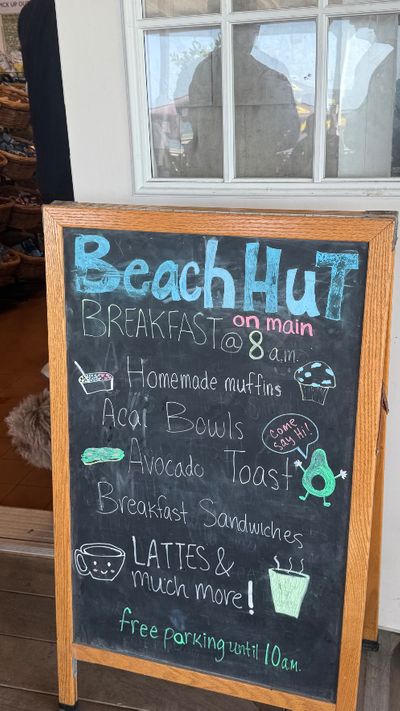 PICK UP OU
BeachHuT
on main
BREAKFAST@ 8 a.m.
Homemade muffins
Acai Bowls
come say Hi!
Avocado Toast
Breakfast Sandwiches
LATTES &
much more!
free parking until 10am.